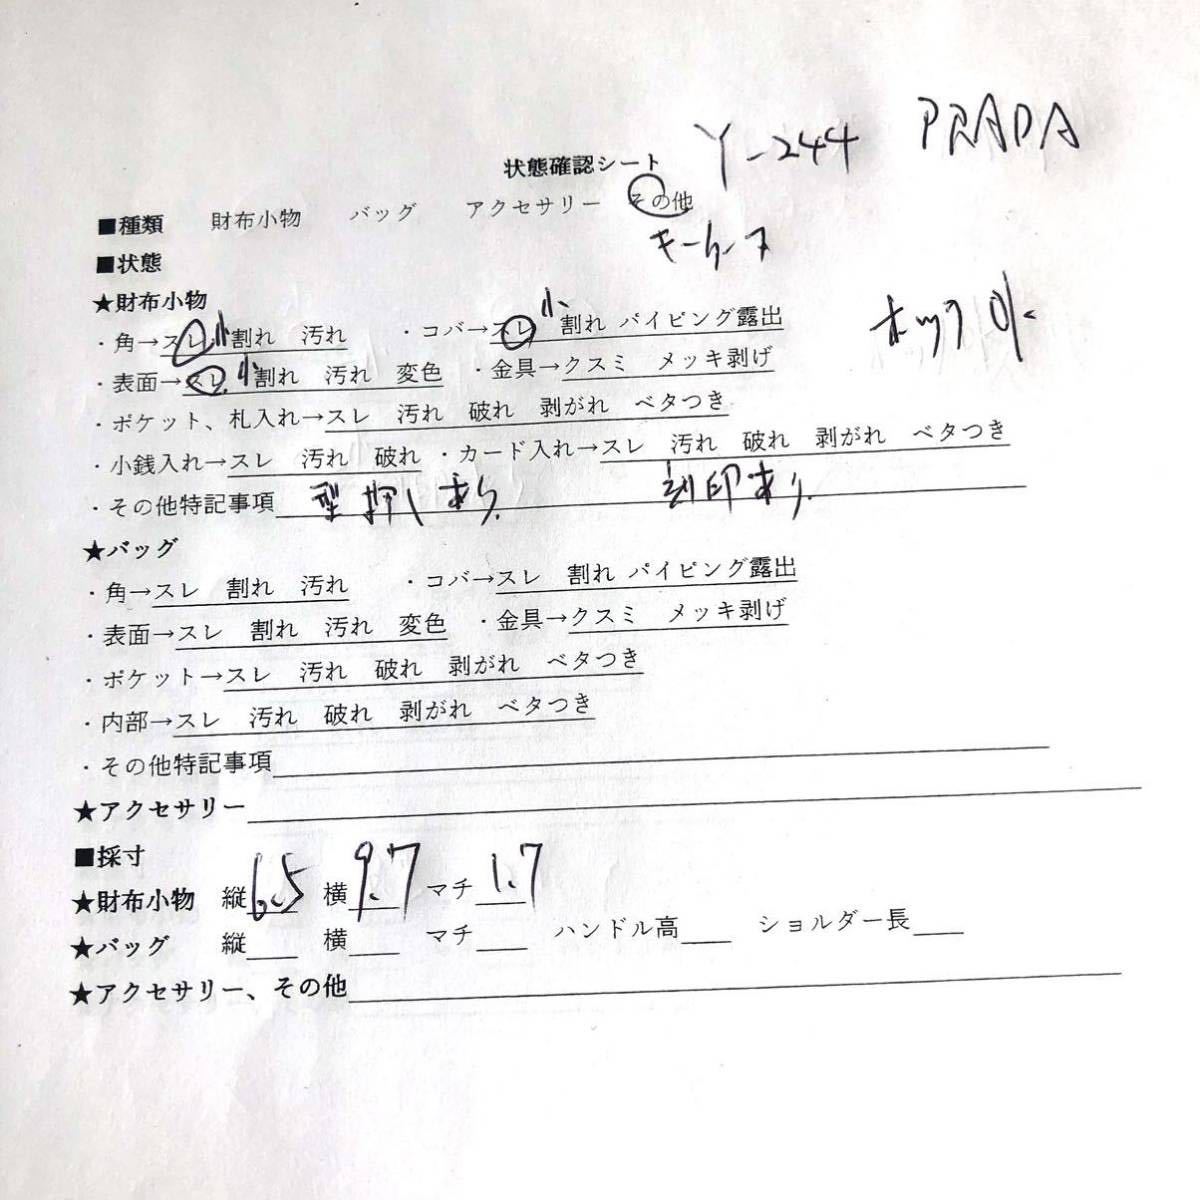 Y-244 PRADA
状態確認シート
■種類 財布小物 バッグ アクセサリー その他
キーケース
■状態
★財布小物
・角→スレ 小 割れ 汚れ ・コバ→スレ 小 割れ パイピング露出
ホック OK
・表面→スレ 小 割れ 汚れ 変色 ・金具→クスミ メッキ剥げ
・ポケット、札入れ→スレ 汚れ 破れ 剥がれ ベタつき
・小銭入れ→スレ 汚れ 破れ ・カード入れ→スレ 汚れ 破れ 剥がれ ベタつき
・その他特記事項 型押しあり 刻印あり
★バッグ
・角→スレ 割れ 汚れ ・コバ→スレ 割れ パイピング露出
・表面→スレ 割れ 汚れ 変色 ・金具→クスミ メッキ剥げ
・ポケット→スレ 汚れ 破れ 剥がれ ベタつき
・内部→スレ 汚れ 破れ 剥がれ ベタつき
・その他特記事項
★アクセサリー
■採寸
★財布小物 縦 6.5 横 9.7 マチ 1.7
★バッグ 縦 横 マチ ハンドル高 ショルダー長
★アクセサリー、その他